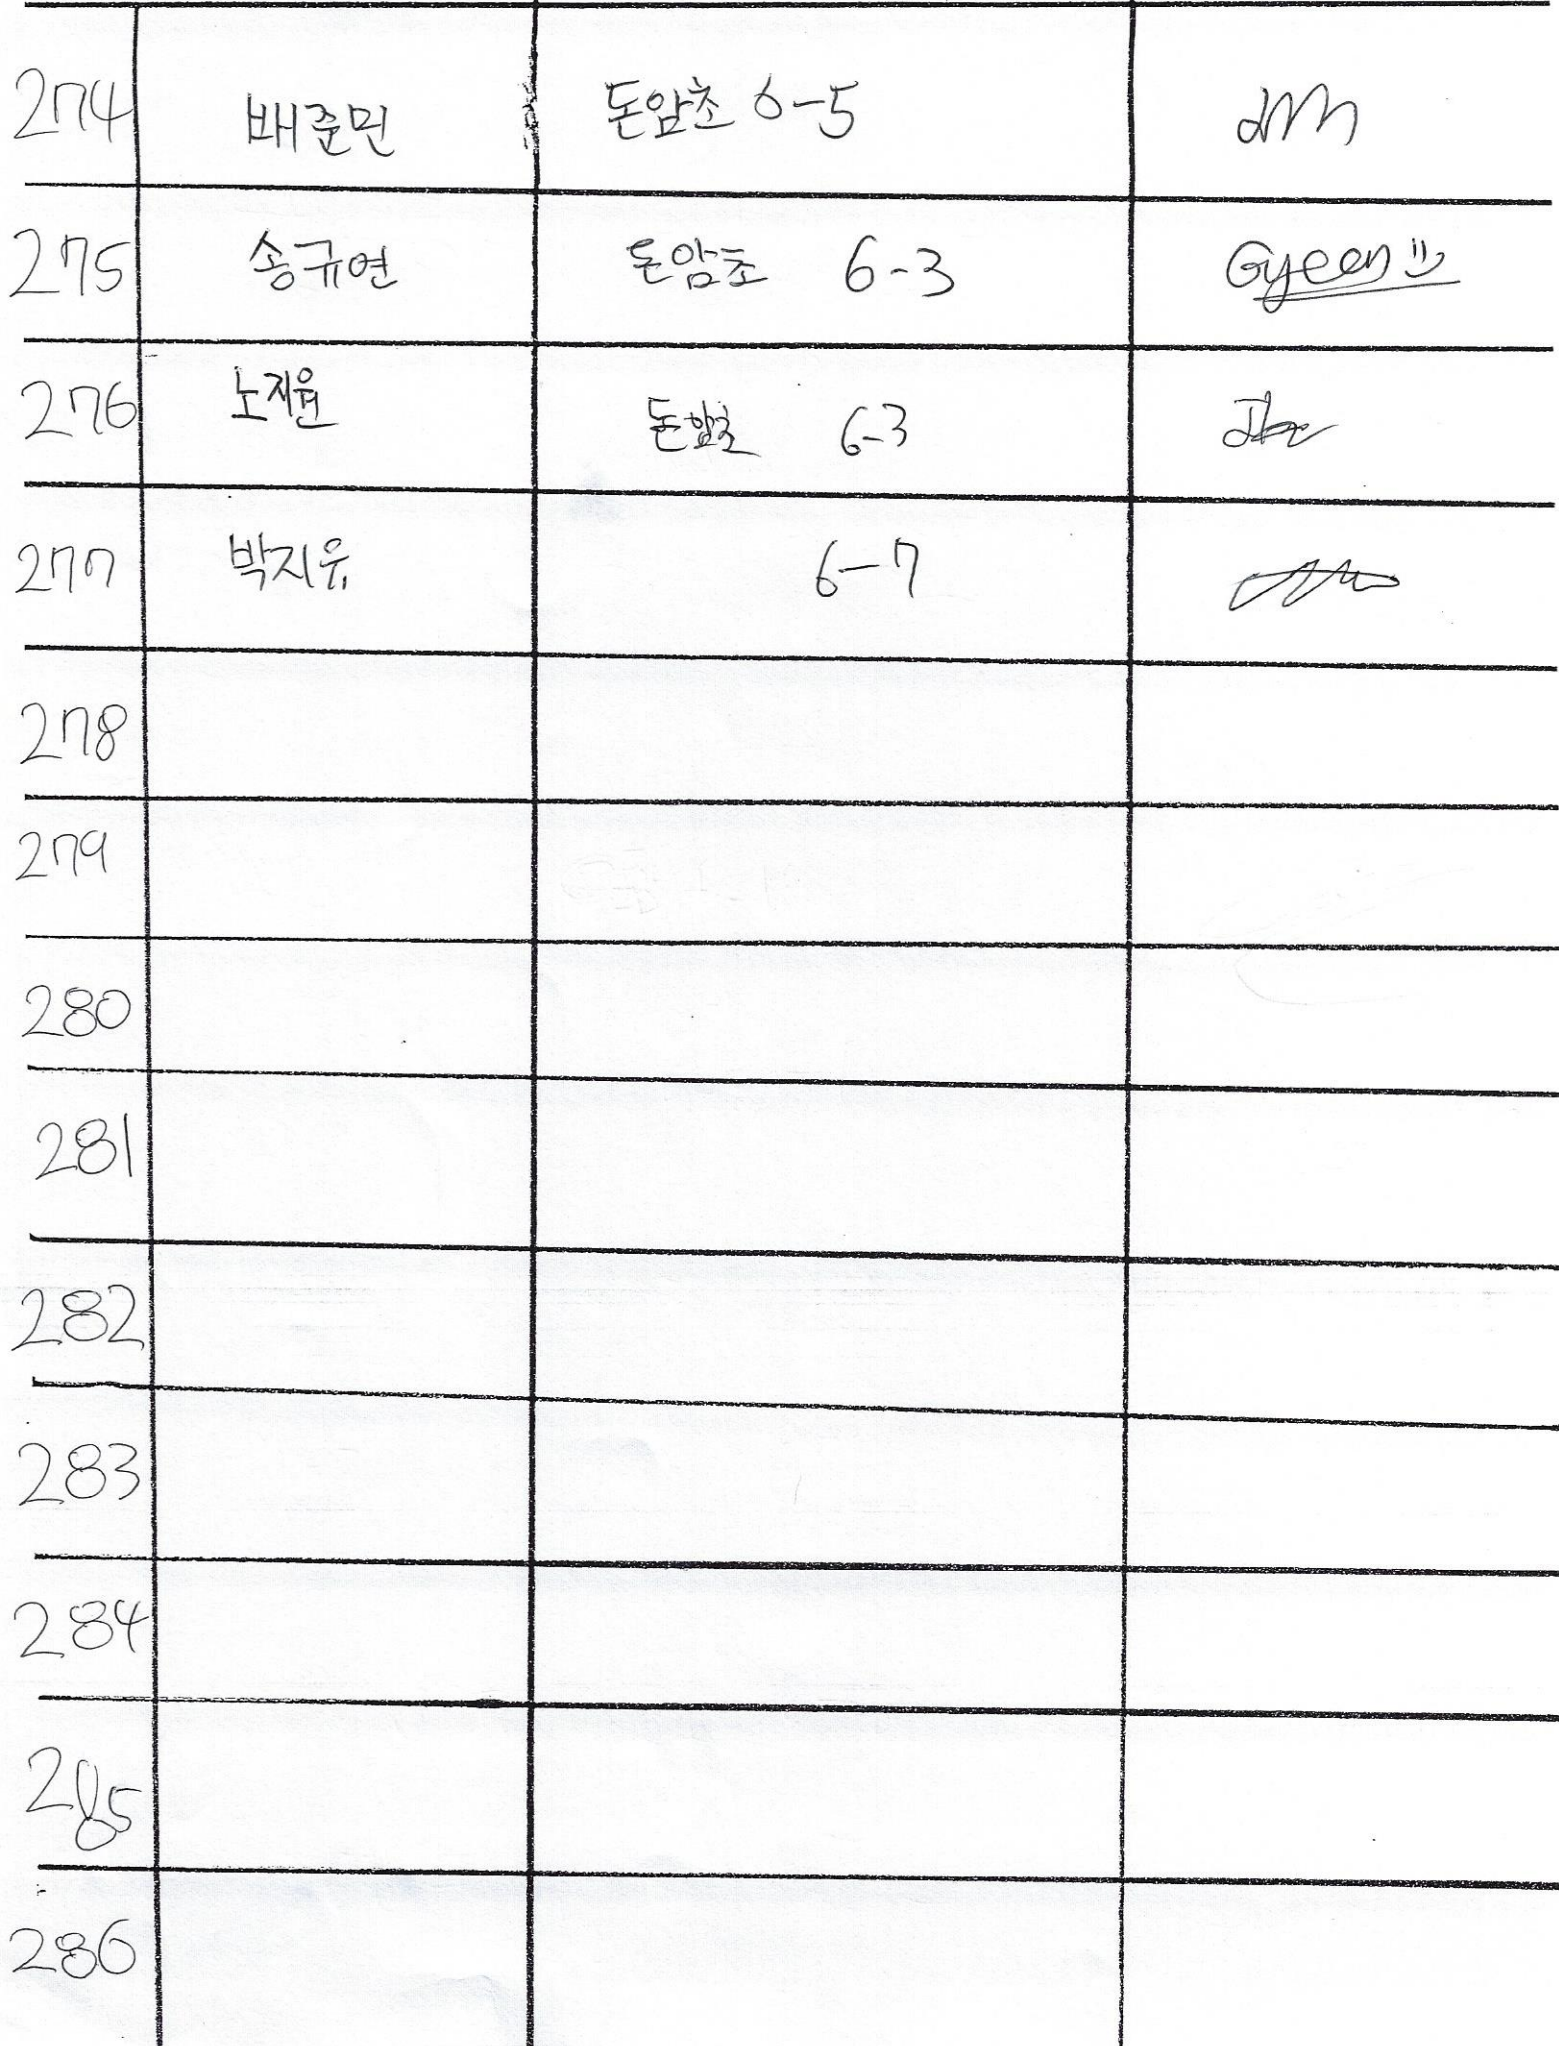 274 배준민 돈암초 6-5
275 송규연 돈암초 6-3 Gyeon
276 노지윤 돈암초 6-3
277 박지유 6-7
278
279
280
281
282
283
284
285
286